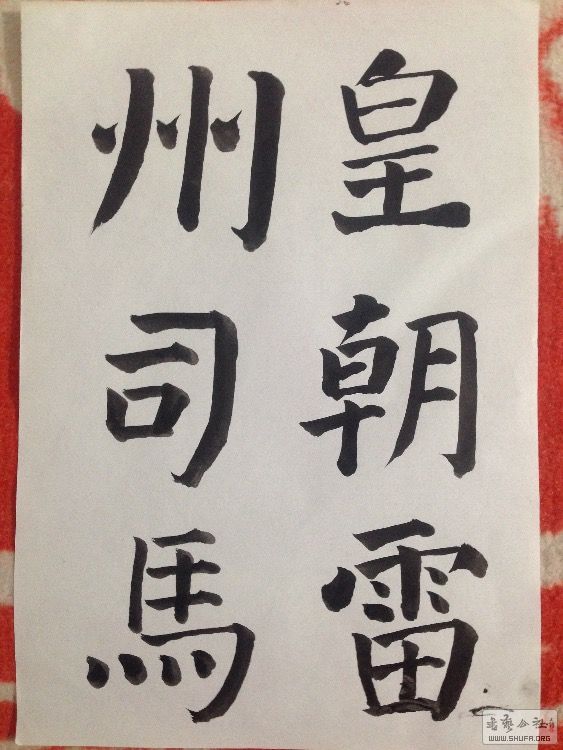 皇朝雷
州司馬
書藝公社
WWW.SHUFA.ORG